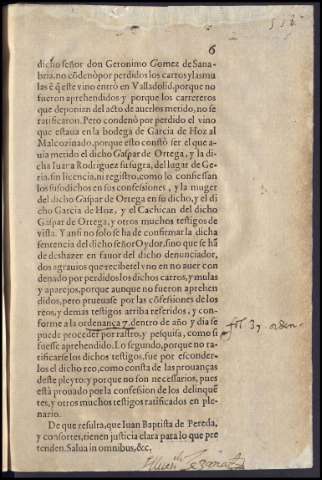 6
dicho señor don Geronimo Gomez de Sana-
bria, no cõdenò por perdidos los carros y las mu
las ẽ q̃ este vino entrò en Valladolid, porque no
fueron aprehendidos y porque los carrereros
que deponian del acto de auerlos metido, no se
ratificaron. Pero condenò por perdido el vino
que estaua en la bodega de Garcia de Hoz al
Malcozinado, porque esto constò ser el que a-
uia metido el dicho Gaspar de Ortega, y la di-
cha Iuana Rodriguez su sugra, del lugar de Ge-
ria, sin licencia, ni registro, como lo confiessan
los susodichos en sus confessiones, y la muger
del dicho Gaspar de Ortega en su dicho, y el di
cho Garcia de Hoz, y el Cachican del dicho
Gaspar de Ortega, y otros muchos testigos de
vista. Y ansi no solo se ha de confirmar la dicha
sentencia del dicho señor Oydor, sino que se hã
de deshazer en fauor del dicho denunciador,
dos agrauios que recibe, el vno en no auer con
denado por perdidos los dichos carros, y mulas
y aparejos, porque aunque no fueron aprehen
didos, pero prueuase por las cõfessiones de los
reos, y demas testigos arriba referidos, y con-
forme a la ordenança 7. dentro de año y dia se
puede proceder por rastro, y pesquisa, como si
fuesse aprehendido. Lo segundo, porque no ra-
tificarse los dichos testigos, fue por esconder-
los el dicho reo, como consta de las prouanças
deste pleyto: y porque no son necessarios, pues
està prouado por la confession de los delinquẽ
tes, y otros muchos testigos ratificados en ple-
nario.
De que resulta, que Iuan Baptista de Pereda,
y consortes, tienen justicia clara para lo que pre
tenden. Salua in omnibus, &c.